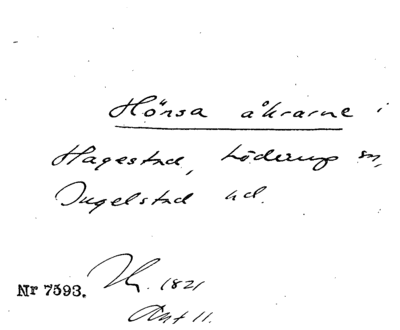 Hönsa åkrarne i
Hagestad, Löderup sn,
Ingelstad hd.
1821
Nr 7593.
Akt 11.